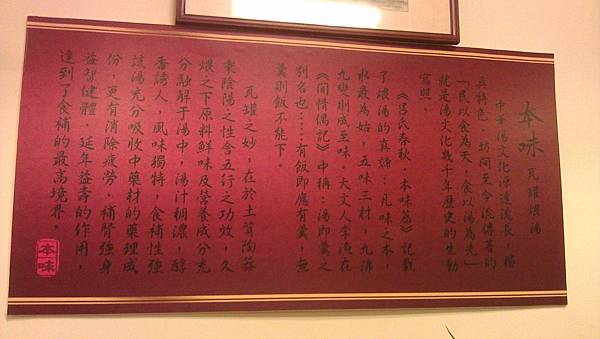 本味 瓦罐煨湯
中華湯文化源遠流長，獨
具特色，坊間至今流傳著的
「民以食為天，食以湯為先」
就是湯文化幾千年歷史的生動
寫照。
《呂氏春秋·本味篇》記載
了煨湯的真諦：凡味之本，
水最為始，五味三材，九沸
九變則成至味。大文人李漁在
《閒情偶記》中稱：湯即羹之
別名也……有飯即應有羹，無
羹則飯不能下。
瓦罐之妙，在於土質陶器
秉陰陽之性含五行之功效，久
煨之下原料鮮味及營養成分充
分融解于湯中，湯汁稠濃，醇
香誘人，風味獨特，食補性強
該湯充分吸收中藥材的藥理成
份，更有消除疲勞、補腎強身
益智健體、延年益壽的作用，
達到了食補的最高境界。
本味